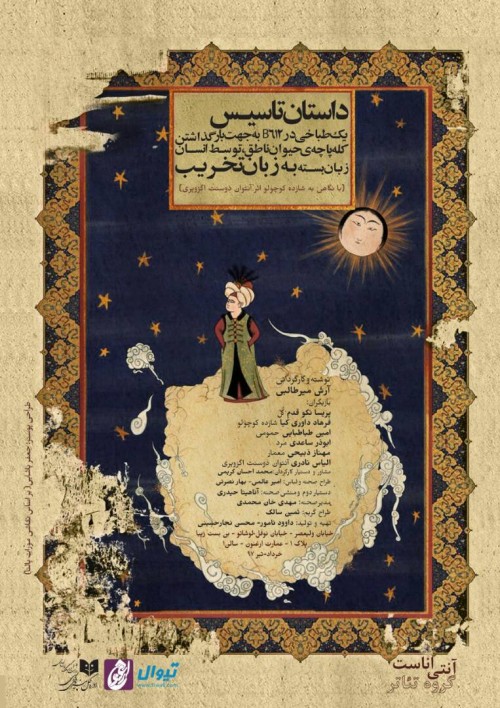 داستان تاسیس
یک طباخی در B۶۱۲ به جهت بار گذاشتن
کله پاچه ی حیوان ناطق، توسط انسان
زبان بسته به زبان تخریب
(با نگاهی به شازده کوچولو اثر آنتوان دوسنت اگزوپری)
نوشته و کارگردانی
آرش میرطالبی
بازیگران:
پریسا نکو قدم گل
فرهاد داوری کیا شازده کوچولو
امین طباطبایی حموس
ابوذر ساعدی مرد
مهناز ذبیحی معمار
الیاس نادری آنتوان دوسنت اگزوپری
مشاور و دستیار کارگردان محمد احسان کریمی
طراح صحنه ولباس: امیر عالمی- بهار نصرتی
دستیار دوم و منشی صحنه: آناهیتا حیدری
مدیرصحنه: مهدی خان محمدی
طراح گریم: ثمین سالک
تهیه و تولید: داوود نامور- محسن نجارحسینی
خیابان ولیعصر - خیابان نوفل لوشاتو - بن بست زیبا
پلاک ۱ - عمارت ارغنون - سالن۱
خرداد-تیر ۹۷
آنتی اناست
گروه تئاتر
تیوال